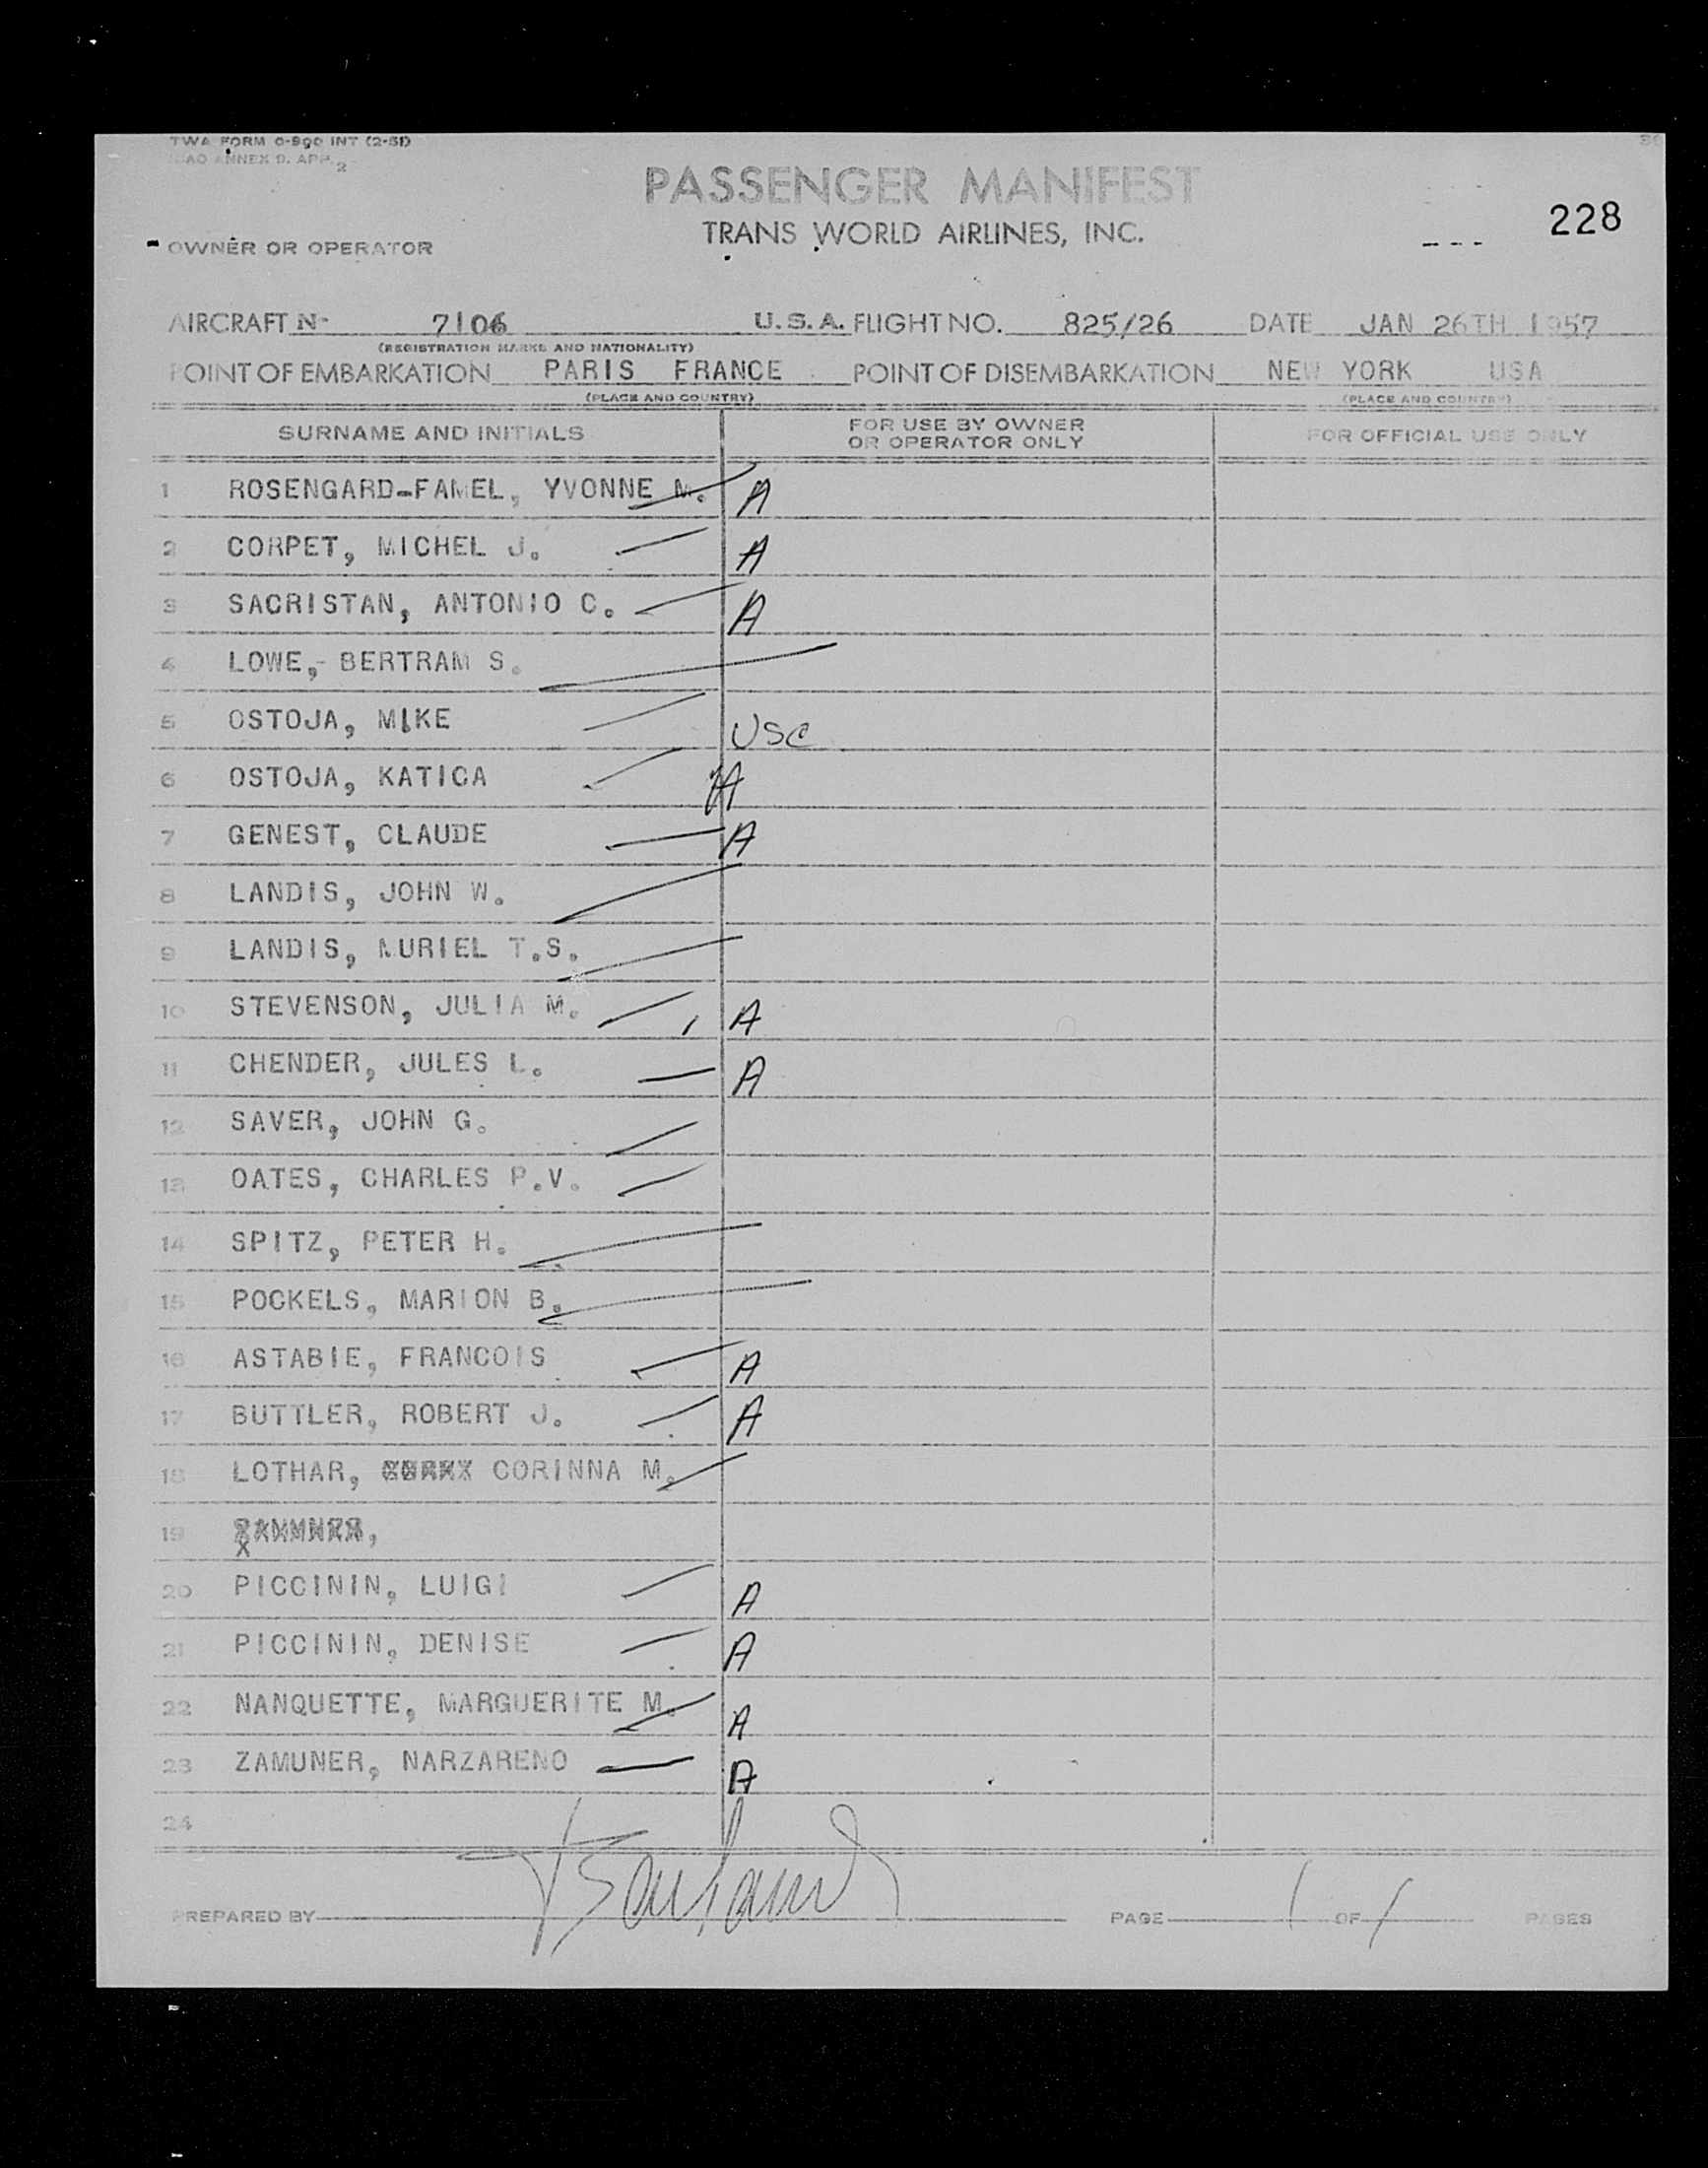 TWA FORM 0-890 INT (2-51)
ICAO ANNEX 9. APP. 2
PASSENGER MANIFEST
TRANS WORLD AIRLINES, INC.
228
OWNER OR OPERATOR
AIRCRAFT N- 7106 U.S.A. FLIGHT NO. 825/26 DATE JAN 26TH 1957
(REGISTRATION MARKS AND NATIONALITY)
POINT OF EMBARKATION PARIS FRANCE POINT OF DISEMBARKATION NEW YORK USA
(PLACE AND COUNTRY) (PLACE AND COUNTRY)
SURNAME AND INITIALS FOR USE BY OWNER OR OPERATOR ONLY FOR OFFICIAL USE ONLY
1 ROSENGARD-FAMEL, YVONNE M. A
2 CORPET, MICHEL J. A
3 SACRISTAN, ANTONIO C. A
4 LOWE, BERTRAM S.
5 OSTOJA, MIKE USC
6 OSTOJA, KATICA A
7 GENEST, CLAUDE A
8 LANDIS, JOHN W.
9 LANDIS, MURIEL T.S.
10 STEVENSON, JULIA M. A
11 CHENDER, JULES L. A
12 SAVER, JOHN G.
13 OATES, CHARLES P.V.
14 SPITZ, PETER H.
15 POCKELS, MARION B.
16 ASTABIE, FRANCOIS A
17 BUTTLER, ROBERT J. A
18 LOTHAR, CORINNA M.
19
20 PICCININ, LUIGI A
21 PICCININ, DENISE A
22 NANQUETTE, MARGUERITE M. A
23 ZAMUNER, NARZARENO A
24
PREPARED BY PAGE 1 OF 1 PAGES